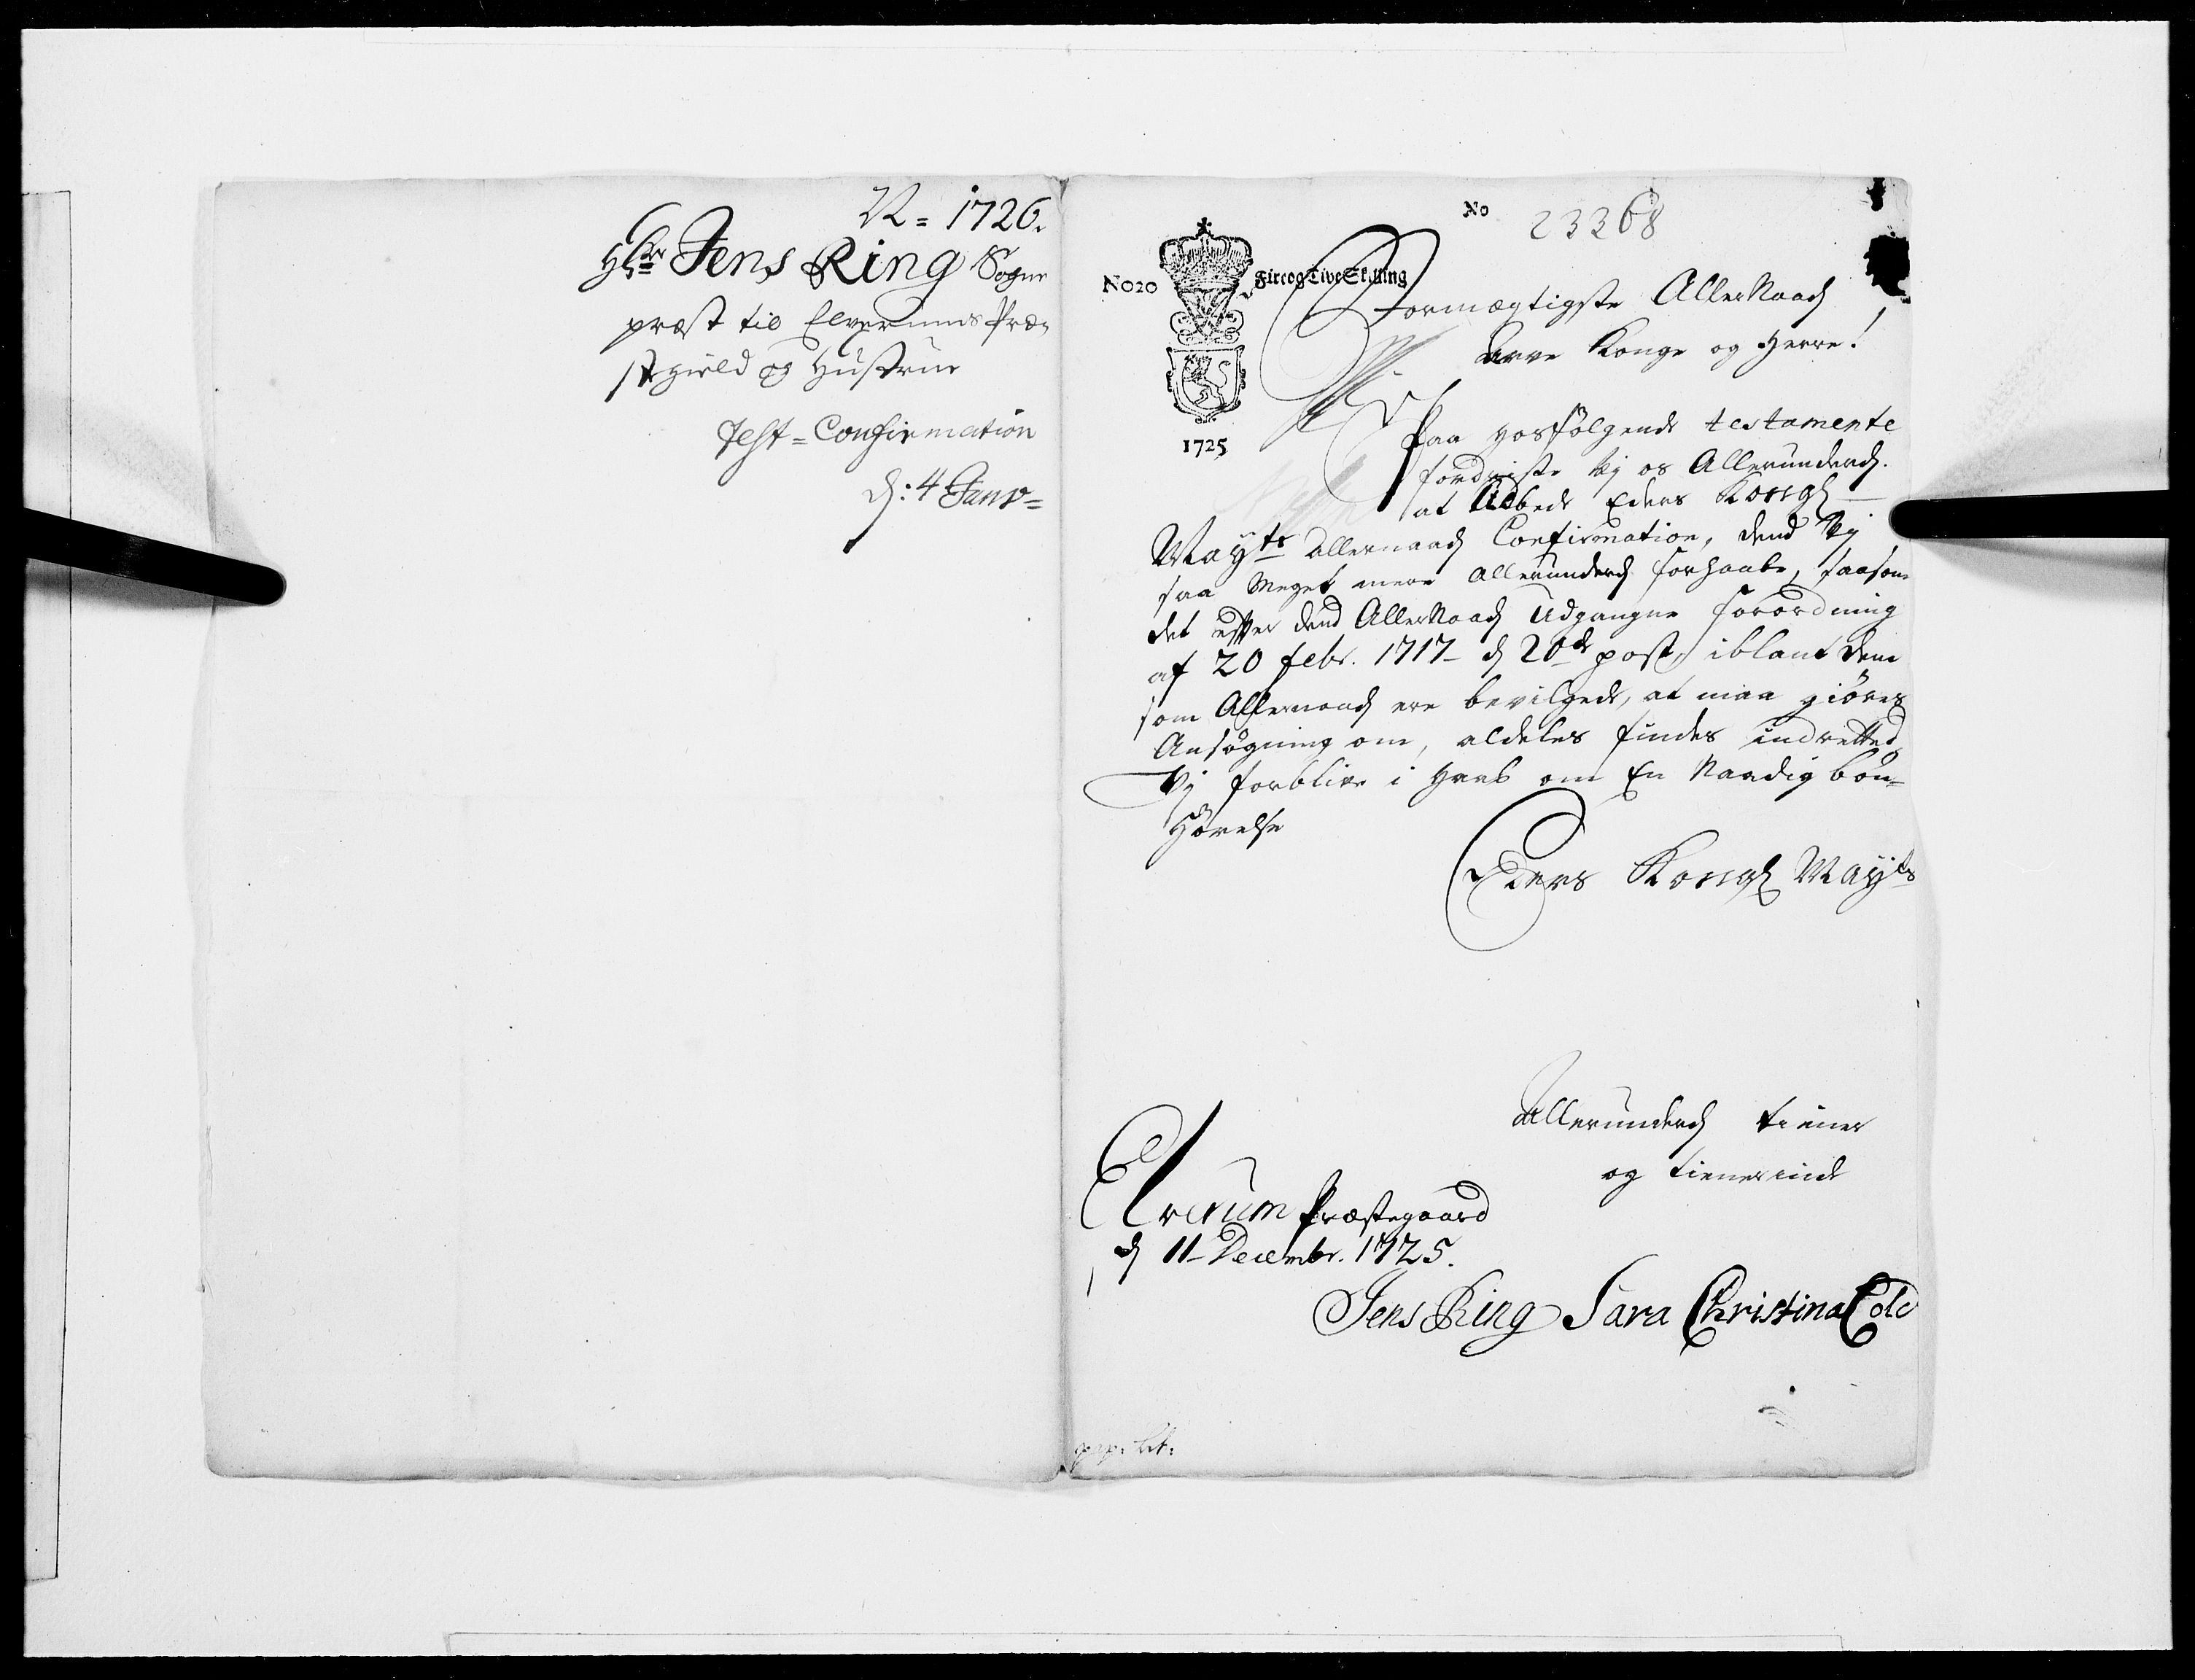 N = 1726.
Hr Jens Ring Sogne
præst til Elverums Præ-
stegield og Hustrue
Test = Confirmation
d: 4 Janv =
No 23368
No 20
Fire og Tive Skilling
1725
Stormægtigste Allernaad
Arve Konge og Herre!
Paa hosfølgende testamente
fordriste Vj os Allerunderd.
at udbede Eders Kongl
Mayts allernaad Confirmation, dend Vj
saa meget mere allerunderd forhaabe, saasom
det efter dend AllerNaad Udgangne forordning
af 20 febr. 1717 d 20de post, iblant dem
som Allernaad ere bevilgede, at maa giöres
Ansøgning om, aldeles findes indrettet,
Vj forblive i Haab om En Naadig bön-
Hörelse
Eders Kongl Mayts
Allerunderd tiener
og tienerinde
Elverum Præstegaard
d 11 Decembr. 1725.
Jens Ring Sara Christina Cold